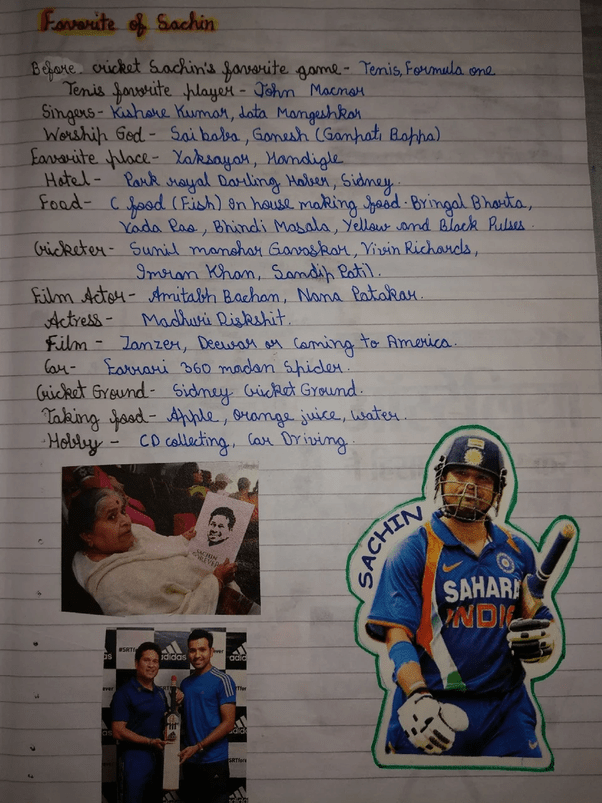 Favorite of Sachin
Before cricket Sachin's favorite game - Tenis, Formula one
Tenis favorite player - John Macnor
Singers - Kishore Kumar, Lata Mangeshkar
Worship God - Sai baba, Ganesh (Ganpati Bappa)
Favorite place - Yaksayar, Handigle
Hotel - Park royal Darling Haber, Sidney.
Food - C food (Fish) In house making food. Bringal Bharta,
Vada Pao, Bhindi Masala, Yellow and Black Pulses.
Cricketer - Sunil manohar Gavaskar, Vivin Richards,
Imran Khan, Sandip Patil.
Film Actor - Amitabh Bachan, Nana Patakar.
Actress - Madhuri Dikshit.
Film - Zanzer, Deewar or Coming to America.
Car - Farrari 360 madan Spider.
Cricket Ground - Sidney Cricket Ground.
Taking food - Apple, orange juice, water.
Hobby - CD collecting, Car Driving.
SACHIN
SAHARA
INDIA
SACHIN
adidas